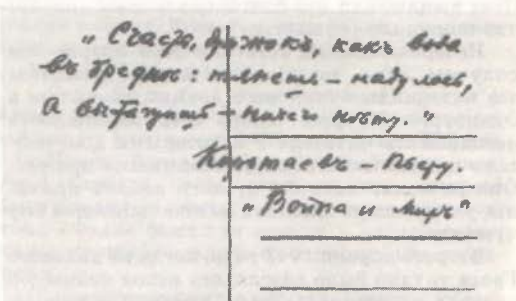 „Счастье, дружокъ, какъ вода
въ бреднѣ: тянешь — надулось,
а вытащишь — ничего нѣту.“
Каратаевъ — Пьеру.
„Война и Миръ“